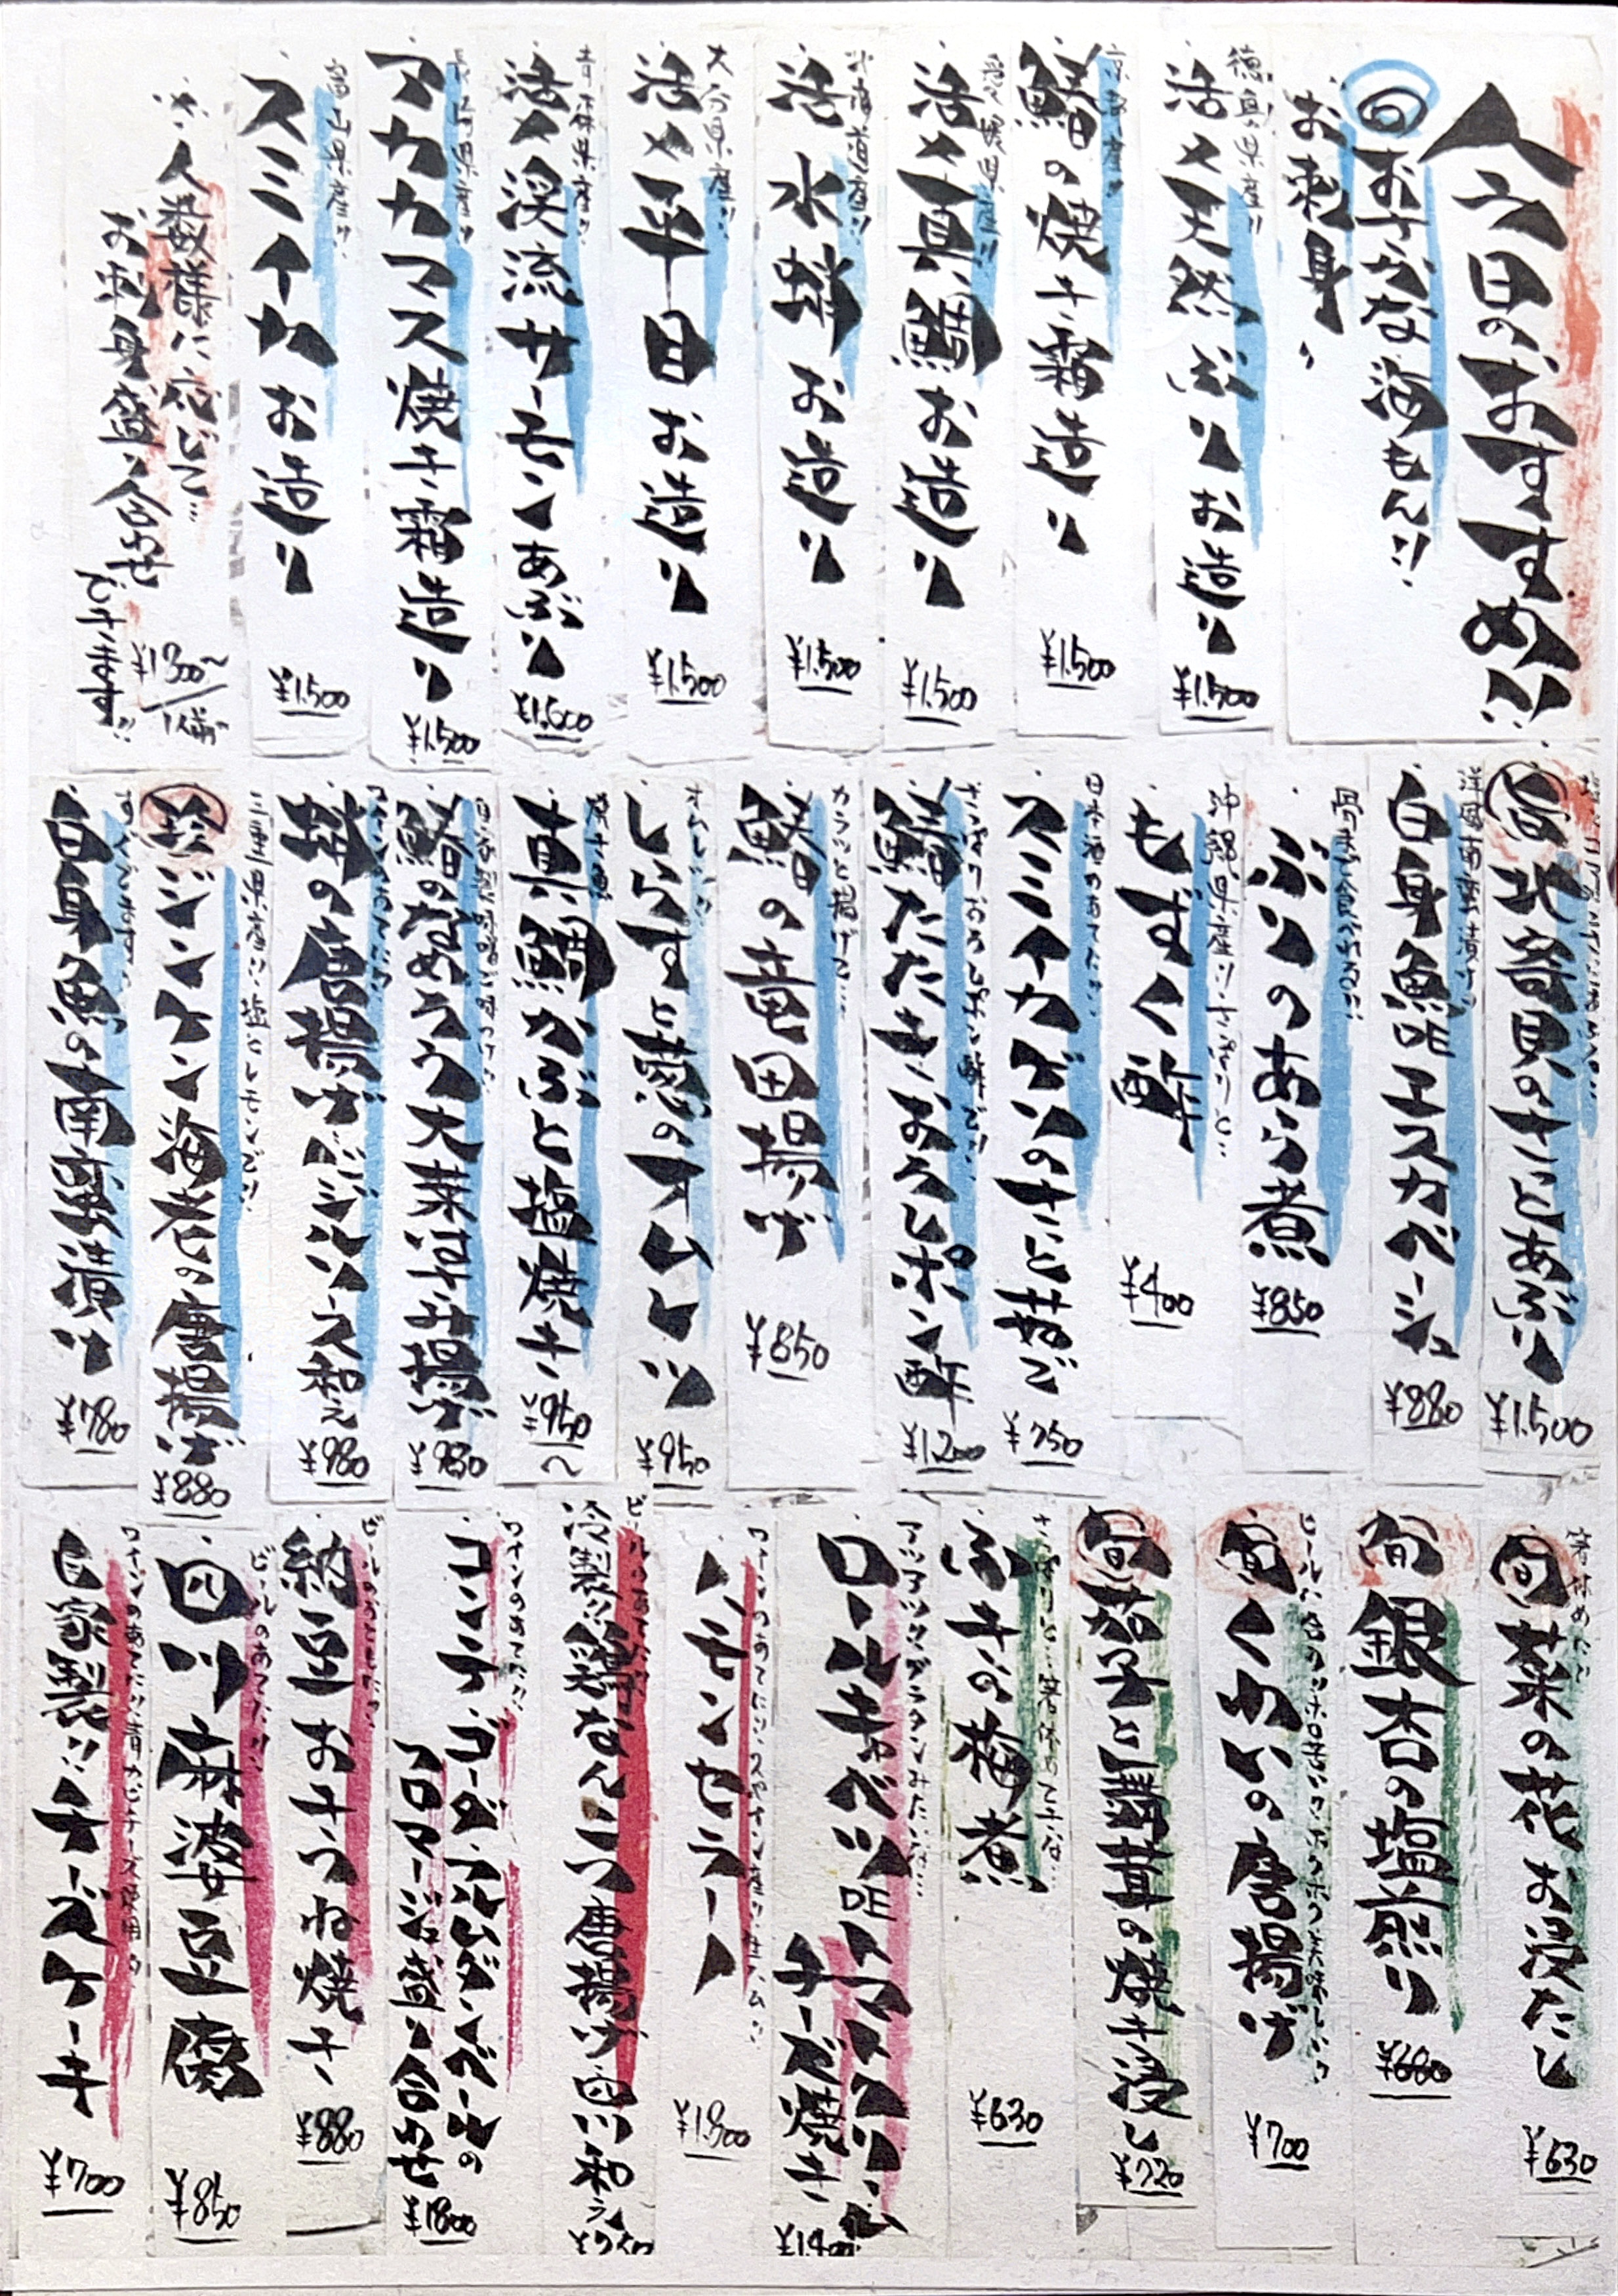 今日のおすすめ!!
旬 おさかな海もん!!
お刺身
徳島県産!!
活〆天然ぶりお造り
¥1.500
京都産!!
鰆の焼き霜造り
¥1.500
愛媛県産!!
活〆真鯛お造り
¥1.500
北海道産!!
活水蛸お造り
¥1.500
大分県産!!
活〆平目お造り
¥1.500
青森県産!!
活〆渓流サーモンあぶり
¥1.500
アカカマス焼き霜造り
¥1.500
富山県産!!
スミイカお造り
¥1.500
人数様に応じて…
お刺身盛り合わせ
できます!!
¥1300~/1人前
北寄貝のさっとあぶり
¥1.500
洋風南蛮漬け!!
白身魚のエスカベーシュ
¥880
骨まで食べれる!!
ぶりのあら煮
¥850
沖縄県産!!さっぱりと…
もずく酢
¥400
日本酒のあてに!!
スミイカげそのさっと茹で
¥750
さっぱりおろしポン酢で!!
鰆たたきおろしポン酢
¥1200
カラッと揚げて…
鰆の竜田揚げ
¥850
しらすと葱のオムレツ
¥950
真鯛かぶと塩焼き
¥950~
鰆のなめろう大葉はさみ揚げ
¥980
蛸の唐揚げバジルソース和え
¥980
三重県産!!塩とレモンで!!
珍 ジンケン海老の唐揚げ
¥880
白身魚の南蛮漬け
¥780
箸休めに…
旬 菜の花お浸たし
¥630
旬 銀杏の塩煎り
¥680
くわいの唐揚げ
¥700
旬 茄子と舞茸の焼き浸し
¥720
ふきの梅煮
¥630
ロールキャベツのトマトソース
チーズ焼き
ハモンセラーノ
ビールのあてに!!
冷製!!鶏なんこつ唐揚げ四川和え
ワインのあてに!!
コンテ、ゴーダ、アムステルダムの
フロマージュ盛り合わせ
¥1800
ビールのおともに!!
納豆おきつね焼き
¥880
ビールのあてに!!
四川麻婆豆腐
¥850
ワインのあてに!!青カビチーズ使用
自家製!!チーズケーキ
¥700